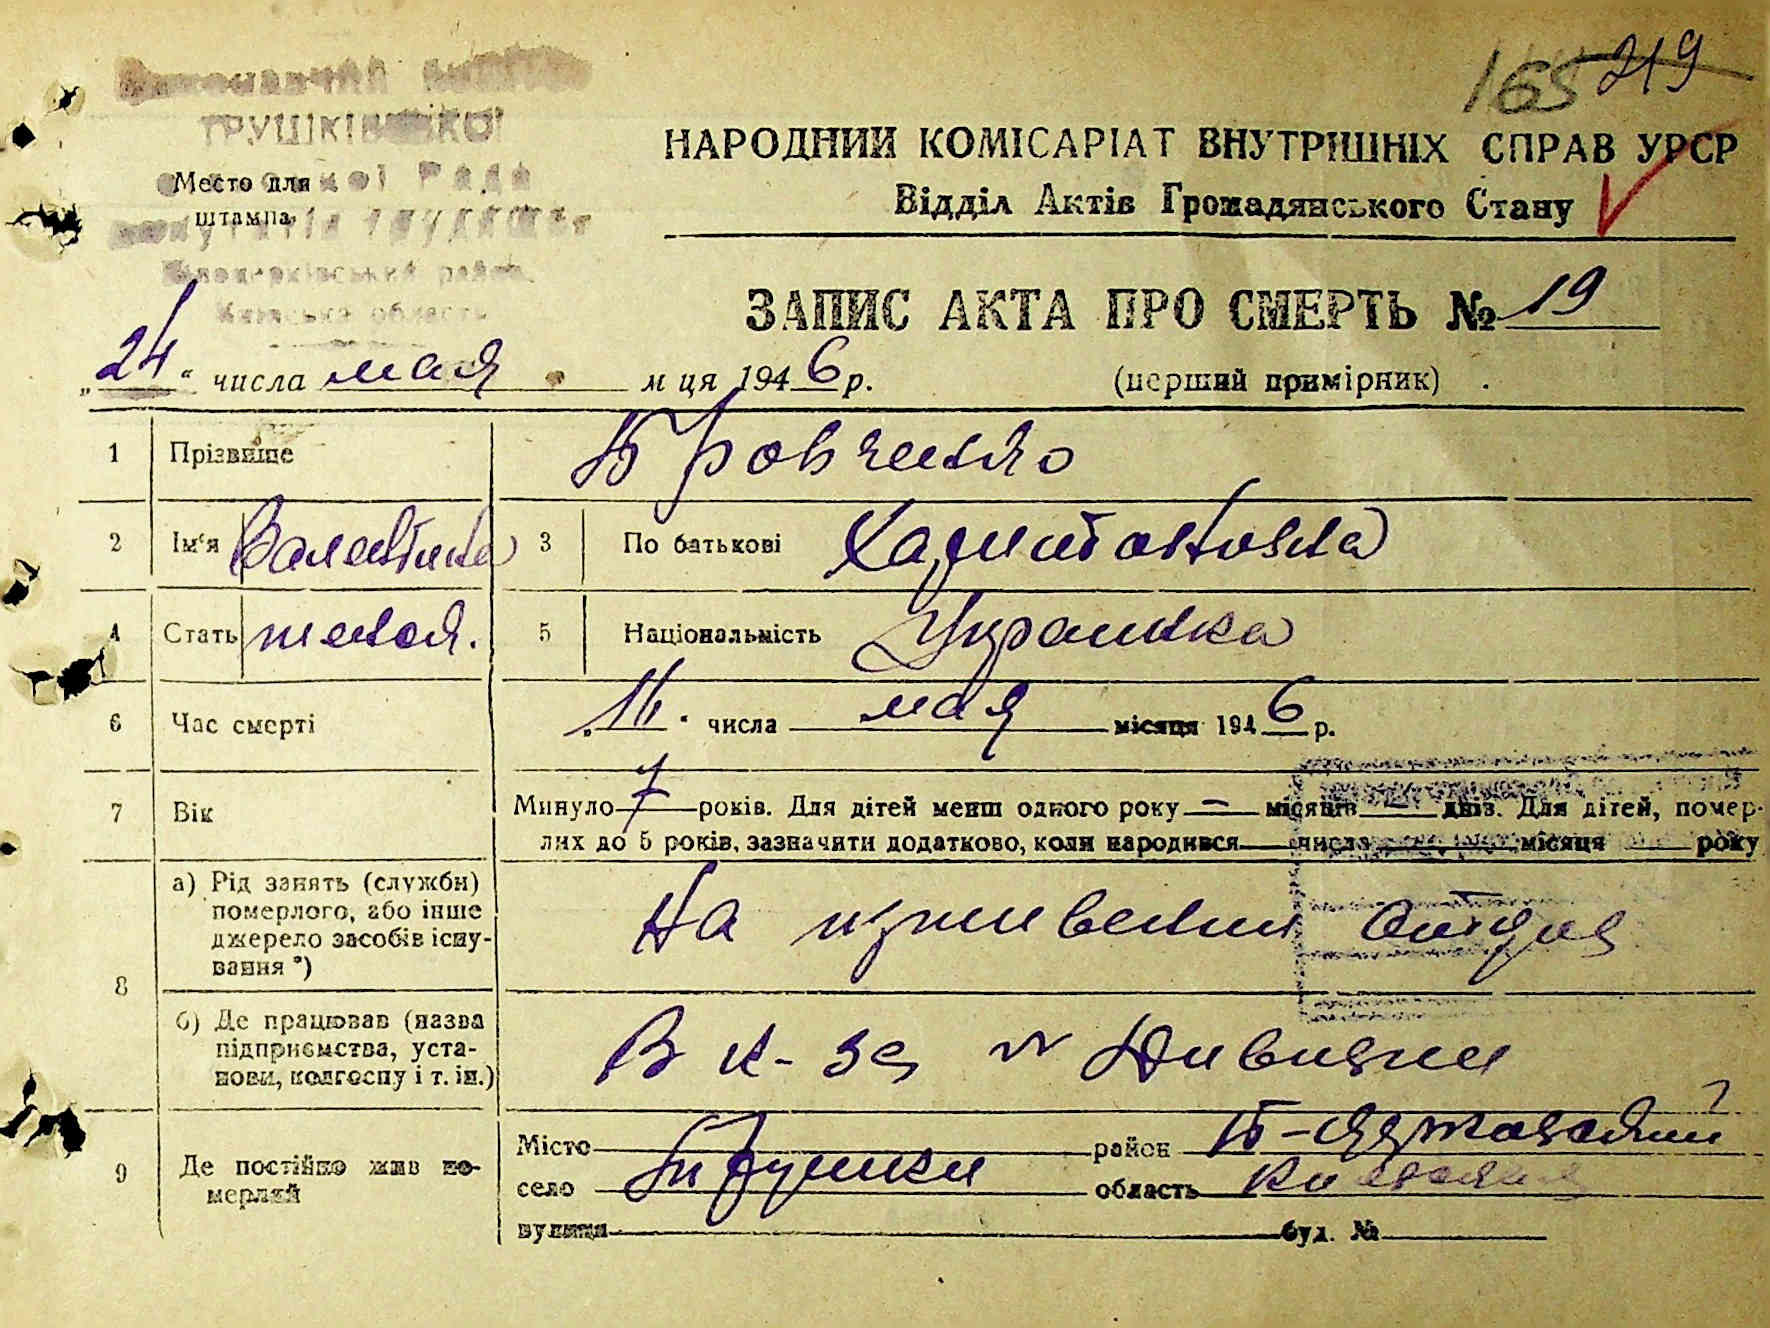 165 219
Виконавчий Комітет
ТРУШКІВСЬКОЇ
сільської Ради
депутатів трудящих
Білоцерківський район
Київська область
Место для
штампа
НАРОДНИЙ КОМІСАРІАТ ВНУТРІШНІХ СПРАВ УРСР
Відділ Актів Громадянського Стану
ЗАПИС АКТА ПРО СМЕРТЬ № 19
„24“ числа мая м ця 1946 р. (перший примірник)
1 Прізвище Бровченко
2 Ім'я Валентина 3 По батькові Харитоновна
4 Стать женская. 5 Національність Украинка
6 Час смерті „16. числа мая місяця 1946 р.
7 Вік Минуло 7 років. Для дітей менш одного року — місяців — днів. Для дітей, помер-
лих до 5 років, зазначити додатково, коли народився — числа місяця року
8 а) Рід занять (служби) померлого, або інше джерело засобів існу-вання *) На иживении отца
б) Де працював (назва підприємства, уста-нови, колгоспу і т. ін.) В к-зе
9 Де постійно жив по-мерлий Місто район Б-Церковский
село Трушки область Киевская
вулиця буд. №